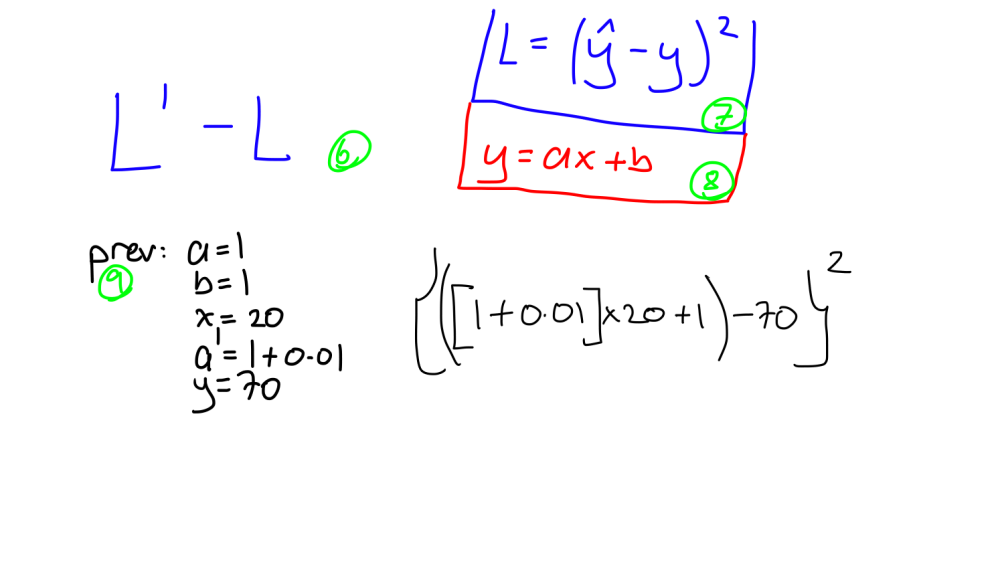 L = (ŷ - y)²
⑦
L' - L ⑥
y = ax + b
⑧
prev: a = 1
⑨ b = 1
x = 20
a' = 1 + 0.01
y = 70
{([1 + 0.01] x 20 + 1) - 70}²